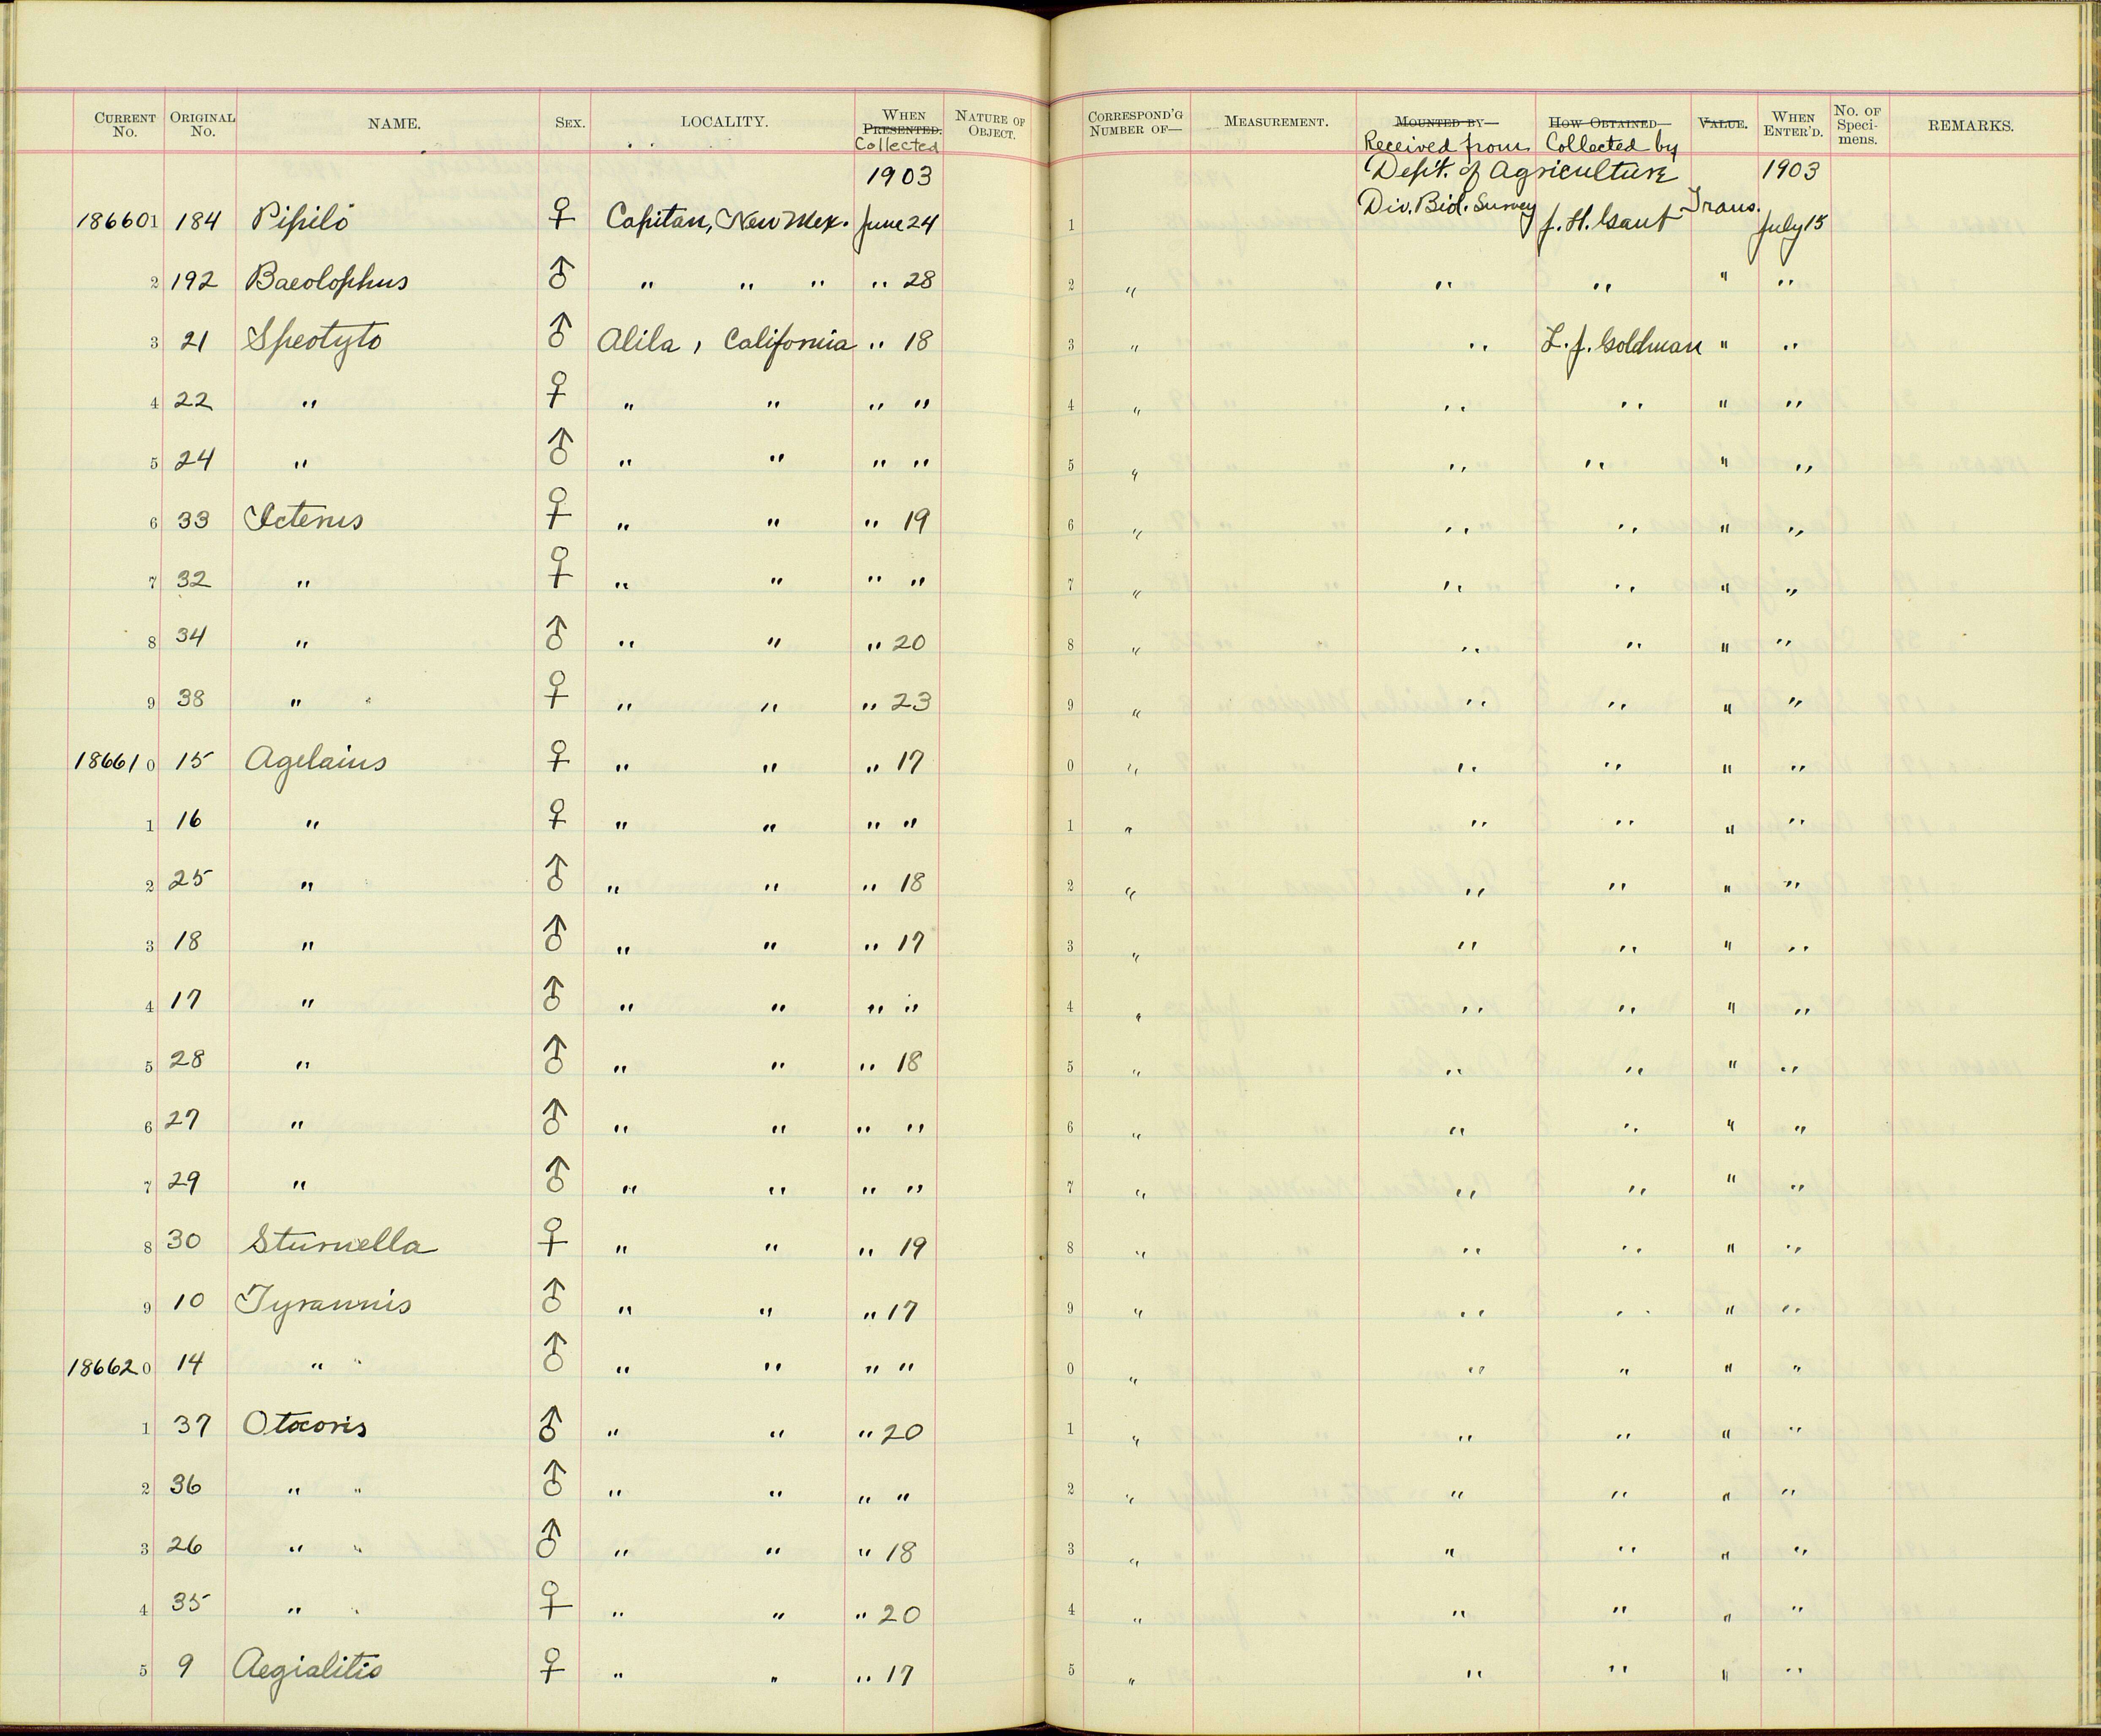 CURRENT No. ORIGINAL No. NAME. SEX. LOCALITY. WHEN PRESENTED. Collected NATURE OF OBJECT. CORRESPOND'G NUMBER OF— MEASUREMENT. MOUNTED BY— Received from HOW OBTAINED— Collected by VALUE. WHEN ENTER'D. No. OF Speci-mens. REMARKS.
1903 Dep't. of Agriculture 1903
186601 184 Pipilo ♀ Capitan, New Mex. June 24 1 Div. Biol. Survey J. H. Gaut Trans. July 15
2 192 Baeolophus ♂ " " " " 28 2 " " " " "
3 21 Speotyto ♂ Alila, California " 18 3 " " L. J. Goldman " "
4 22 " ♀ " " " " 4 " " " " "
5 24 " ♂ " " " " 5 " " " " "
6 33 Icterus ♀ " " " 19 6 " " " " "
7 32 " ♀ " " " " 7 " " " " "
8 34 " ♂ " " " 20 8 " " " " "
9 38 " ♀ " " " 23 9 " " " " "
186610 15 Agelaius ♀ " " " 17 0 " " " " "
1 16 " ♀ " " " " 1 " " " " "
2 25 " ♂ " " " 18 2 " " " " "
3 18 " ♂ " " " 17 3 " " " " "
4 17 " ♂ " " " " 4 " " " " "
5 28 " ♂ " " " 18 5 " " " " "
6 27 " ♂ " " " " 6 " " " " "
7 29 " ♂ " " " " 7 " " " " "
8 30 Sturnella ♀ " " " 19 8 " " " " "
9 10 Tyrannis ♂ " " " 17 9 " " " " "
186620 14 " " ♂ " " " " 0 " " " " "
1 37 Otocoris ♂ " " " 20 1 " " " " "
2 36 " " ♂ " " " " 2 " " " " "
3 26 " " ♂ " " " 18 3 " " " " "
4 35 " " ♀ " " " 20 4 " " " " "
5 9 Aegialitis ♀ " " " 17 5 " " " " "